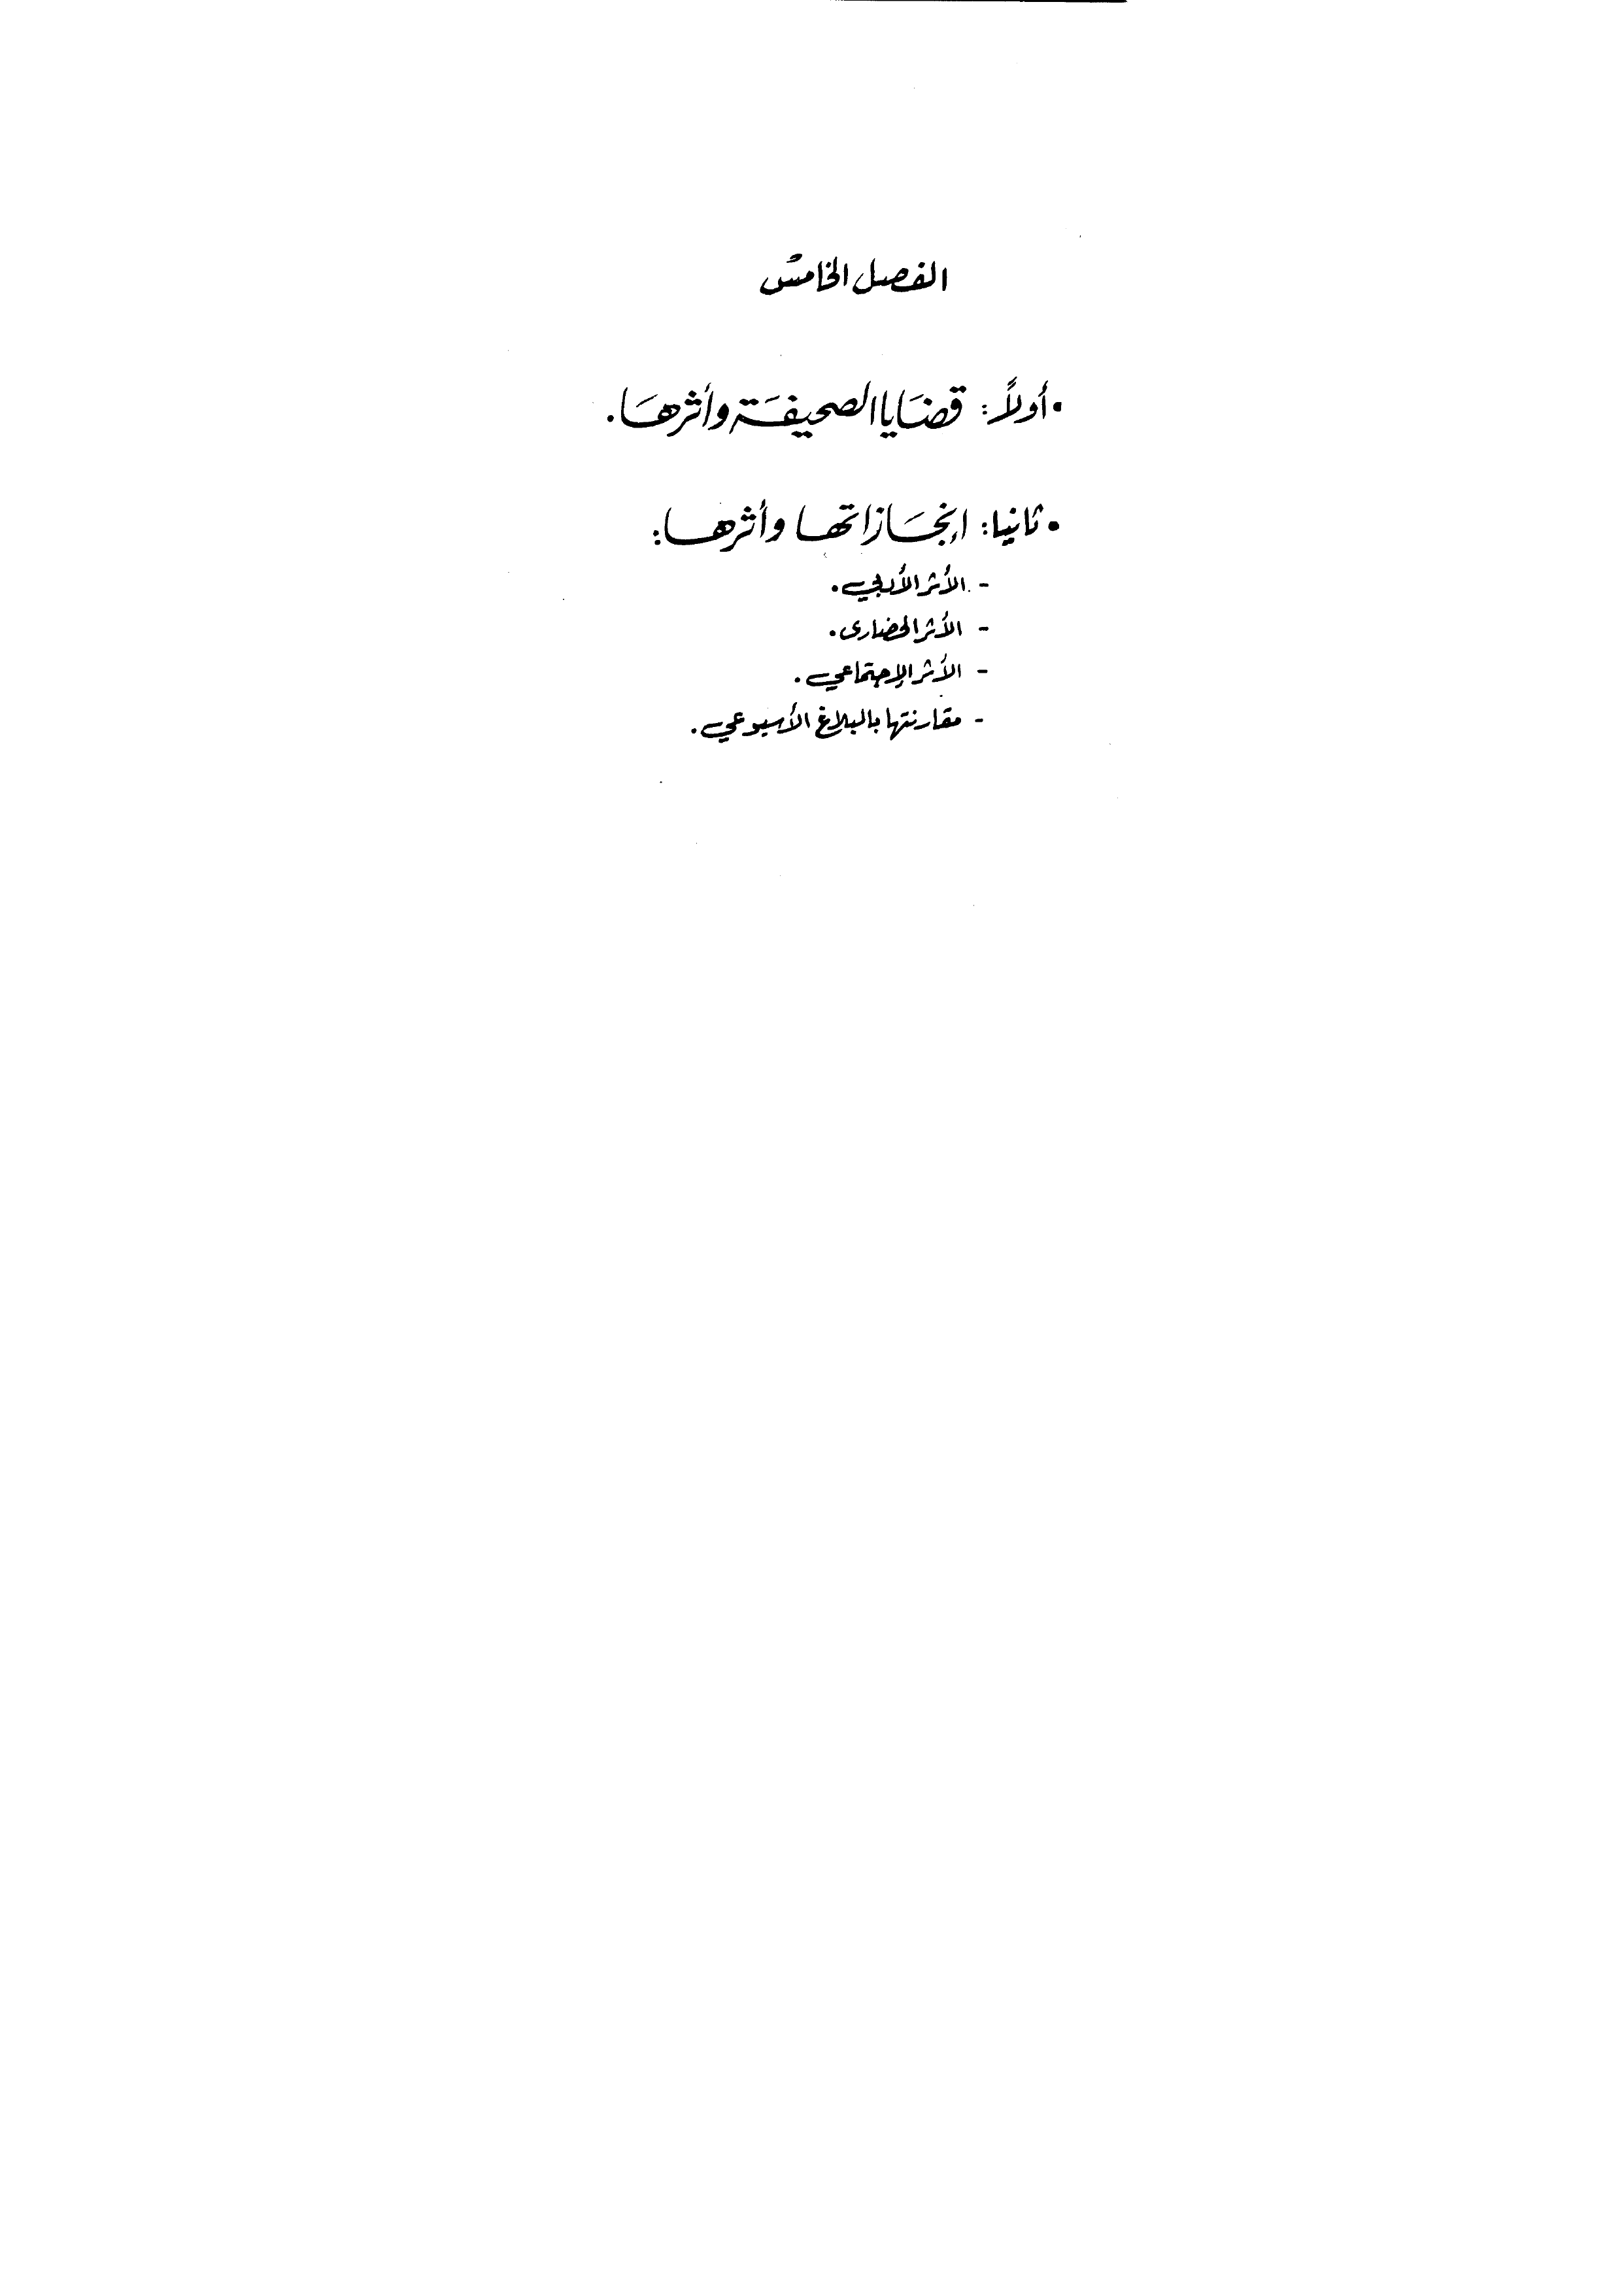 الفصل الخامس
• أولاً: قضَايا الصحيفَة وأثرهَا.
• ثانيا: إنجَازاتها وأثرها:
- الأثر الأدبي.
- الأثر الحضارى.
- الأثر الإجتماعي.
- مقارنتها بالبلاغ الأسبوعي.